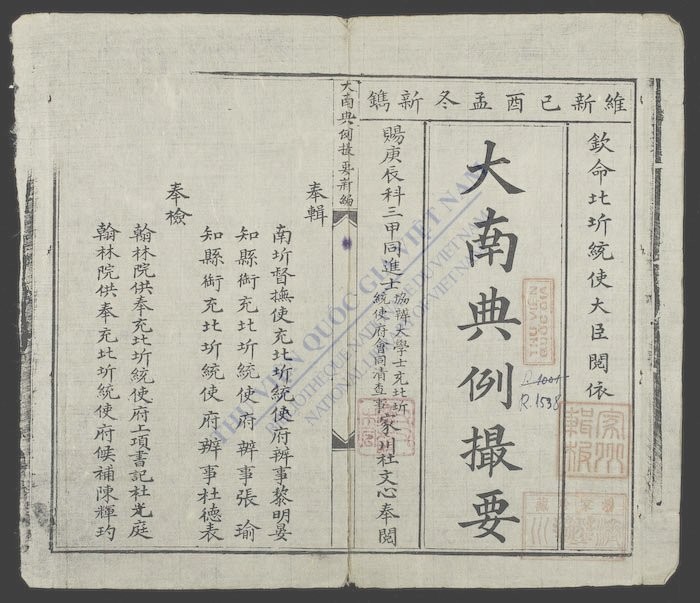 維新己酉孟冬新鐫
欽命北圻統使大臣閱依
大南典例撮要
賜庚辰科三甲同進士協辦大學士充北圻統使府會同清查事家川社文心奉閱
大南典例撮要新編
奉輯
南圻督撫使充北圻統使府辦事黎明晏
知縣銜充北圻統使府辦事張瑜
知縣銜充北圻統使府辦事杜德表
奉檢
翰林院供奉充北圻統使府上項書記杜光庭
翰林院供奉充北圻統使府候補陳輝玓
R.1538
THƯ VIỆN QUỐC GIA VIỆT NAM
BIBLIOTHEQUE NATIONALE DU VIETNAM
NATIONAL LIBRARY OF VIETNAM